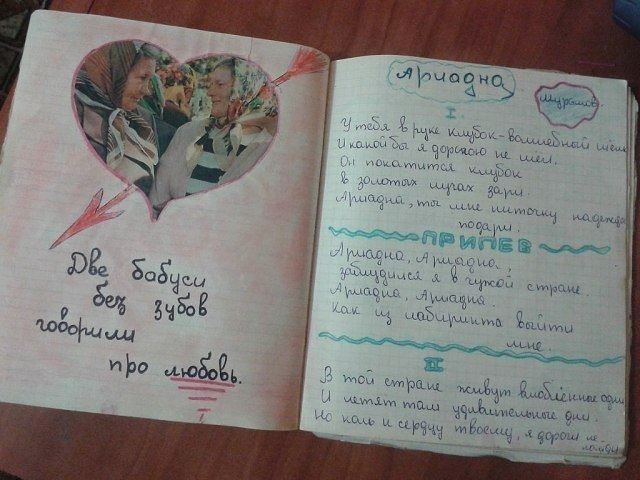 Две бабуси
без зубов
говорили
про любовь.
Ариадна
Муромов.
I
У тебя в руке клубок - волшебный
И какой бы я дорогою не шёл,
Он покатится клубок
в золотых лучах зари.
Ариадна, ты мне ниточку надежды
подари.
ПРИПЕВ
Ариадна, Ариадна,
заблудился я в чужой стране.
Ариадна, Ариадна.
Как из лабиринта выйти
мне.
II
В той стране живут влюблённые одни
И летят там удивительные дни.
Но коль к сердцу твоему, я дороги не